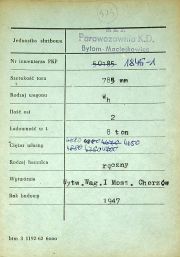 Jednostka służbowa
Parowozownia K.D.
Bytom-Maciejkowice
Nr inwentarza PKP 1845-1
Szerokość toru 785 mm
Rodzaj wagonu Wh
Ilość osi 2
Ładowność w t 8 ton
Ciężar własny
Rodzaj hamulca ręczny
Wytwórnia Wytw.Wag.i Most. Chorzów
Rok budowy 1947